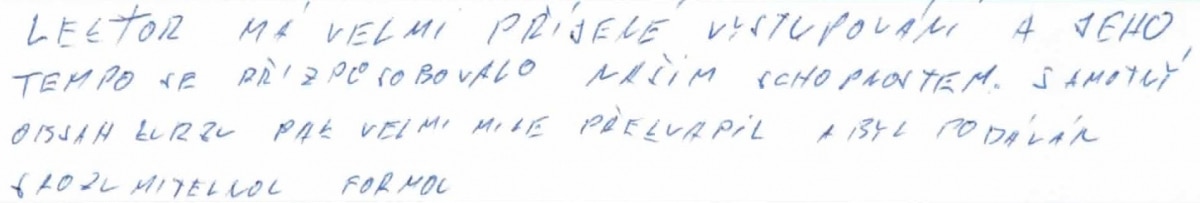 LEKTOR MÁ VELMI PŘÍJEMNÉ VYSTUPOVÁNÍ A JEHO
TEMPO SE PŘIZPŮSOBOVALO NAŠIM SCHOPNOSTEM. SAMOTNÝ
OBSAH KURZU PAK VELMI MILE PŘEKVAPIL A BYL PODÁVÁN
SROZUMITELNOU FORMOU